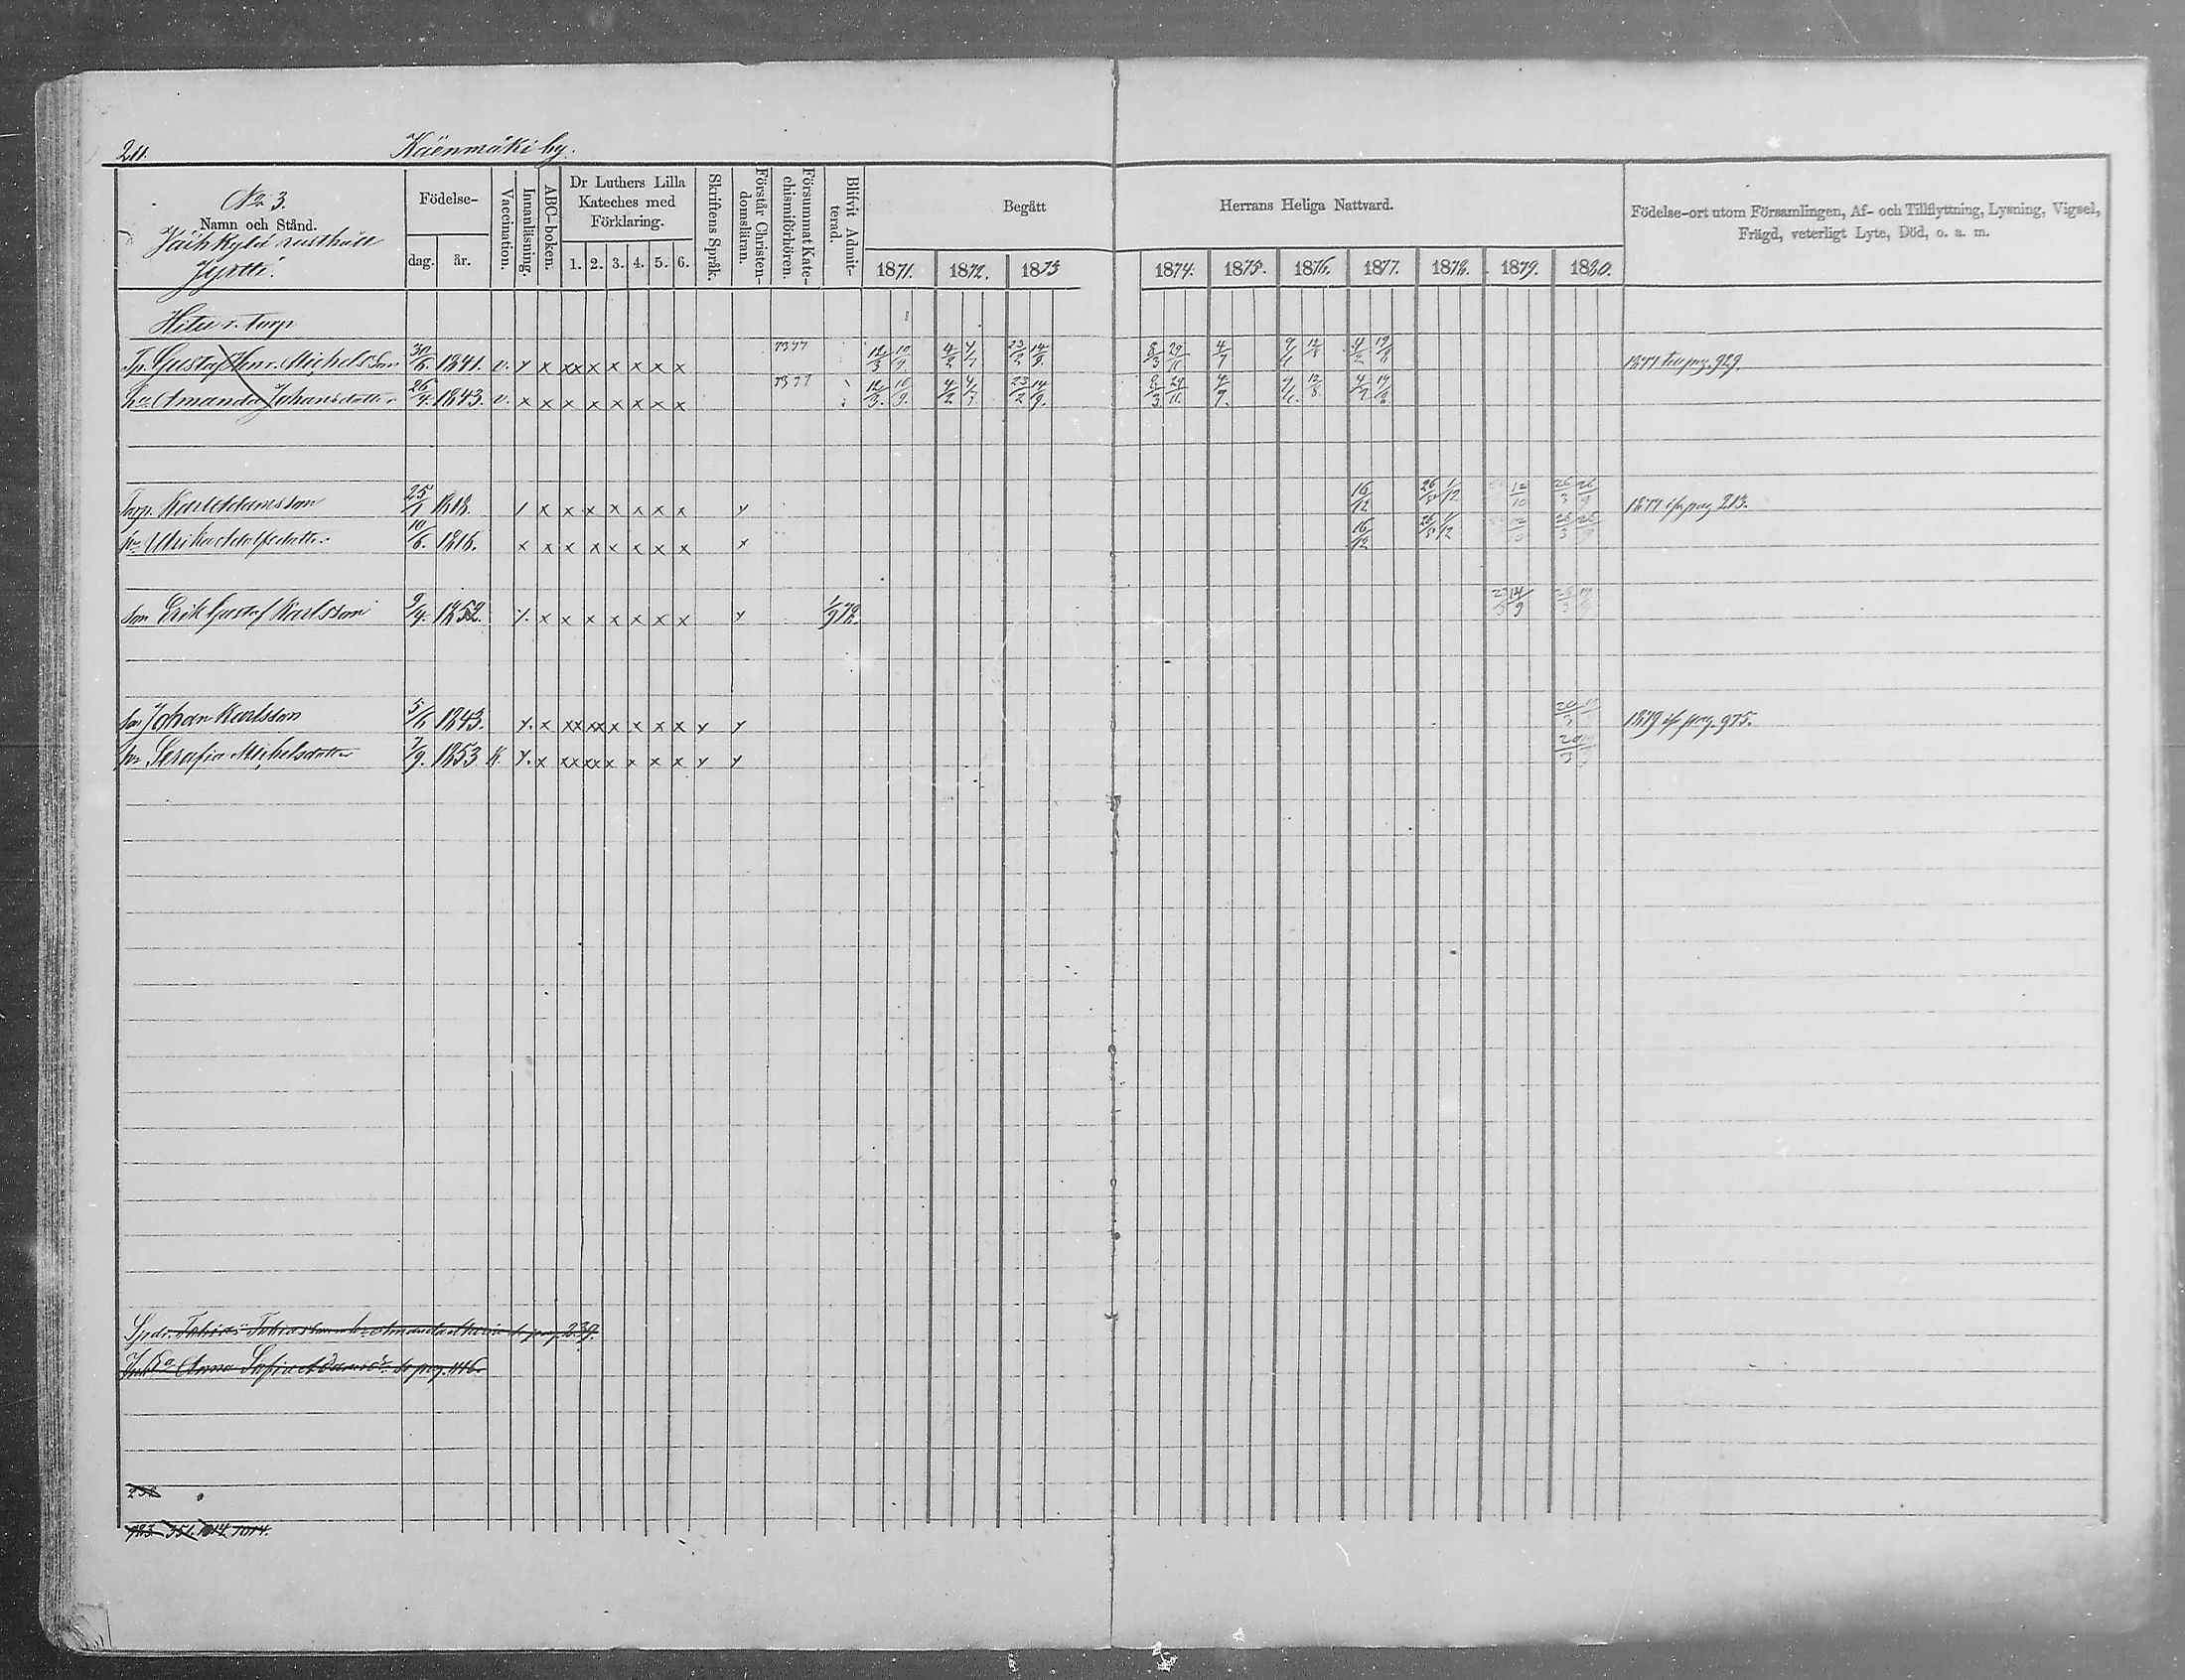 211. Käenmäki by.
No 3.
Namn och Stånd.
Jäihkylä rusthåll
Jyrtti.
Födelse-
dag. år.
Vaccination.
Innanläsning.
ABC-boken.
Dr Luthers Lilla
Kateches med
Förklaring.
1. 2. 3. 4. 5. 6.
Skriftens Språk.
Förstår Christen-
domsläran.
Försummat Kate-
chismiförhören.
Blifvit Admit-
terad.
Begått Herrans Heliga Nattvard.
1871. 1872. 1873 1874. 1875. 1876. 1877. 1878. 1879. 1880.
Födelse-ort utom Församlingen, Af- och Tillflyttning, Lysning, Vigsel,
Frägd, veterligt Lyte, Död, o. a. m.
torp
Tp. Gustaf Henr. Michelsson 30/6. 1841. v. x x xx x x x x x 1877 12/3 10/9 4/2 4/7 23/2 14/9. 8/3 29/11 4/7 12/8 4/2 19/8 1877 till pag. 929.
hu Amanda Johansdotter 26/4. 1843. v. x x x x x x x x 1877 12/3. 10/9. 4/2 4/7 23/2 14/9. 8/3 29/11. 4/7. 12/8 4/2 19/8
Torp. Karl Adamsson 25/1 1818. x x x x x x x 16/12 26/5 1/12 12/10 26/3 26/9 1877 ifr pag 213.
hu Ulrika Adolfsdotter 10/6. 1816. x x x x x x x x x 16/12 26/5 1/12 12/10 26/3 26/9
son Erik Gustaf Karlsson 9/4. 1852. x x x x x x x 1/9 72. 23/3 14/9
son Johan Karlsson 5/6 1843. x xx xx x x x x 1879 ifr pag. 975.
hu Serafia Michelsdotter 7/9. 1853 x xx xx x x x x
Tobias Tobiasson hu Amanda Maria pag. 239.
Anna Sofia Adamsdr pag. 1116.
238
983 351. 1014. 1014.